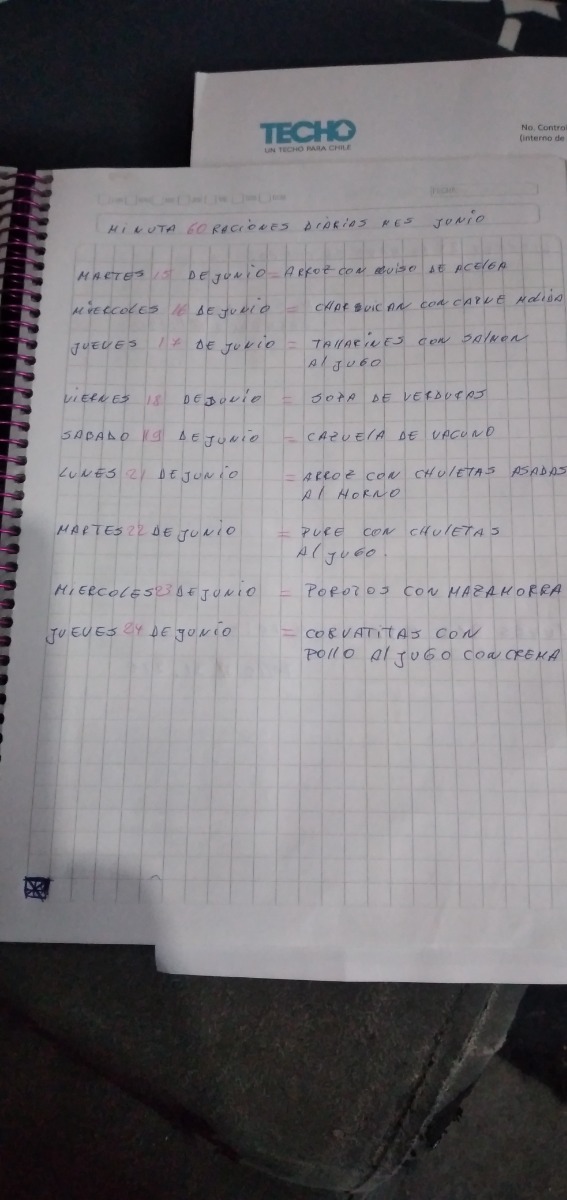 TECHO
UN TECHO PARA CHILE
No. Control
(interno de
MINUTA 60 RACIONES DIARIAS MES JUNIO
MARTES 15 DE JUNIO = ARROZ CON GUISO DE ACELGA
MIERCOLES 16 DE JUNIO = CHARQUICAN CON CARNE MOLIDA
JUEVES 17 DE JUNIO = TALLARINES CON SALMON
Al JUGO
VIERNES 18 DE JUNIO = SOPA DE VERDURAS
SABADO 19 DE JUNIO = CAZUELA DE VACUNO
LUNES 21 DE JUNIO = ARROZ CON CHULETAS ASADAS
Al HORNO
MARTES 22 DE JUNIO = PURE CON CHULETAS
Al JUGO.
MIERCOLES 23 DE JUNIO = POROTOS CON MAZAMORRA
JUEVES 24 DE JUNIO = CORVATITAS CON
POLLO Al JUGO CON CREMA